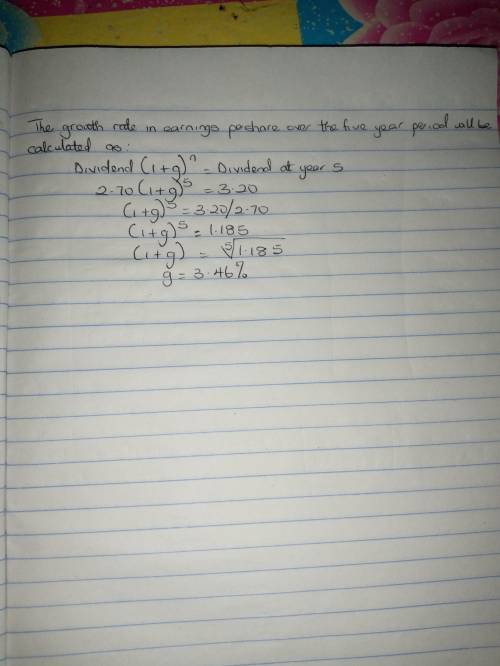 The growth rate in earnings per share over the five year period will be
calculated as:
Dividend (1+g)ⁿ = Dividend at year 5
2.70 (1+g)⁵ = 3.20
(1+g)⁵ = 3.20/2.70
(1+g)⁵ = 1.185
(1+g) = ⁵√1.185
g = 3.46%